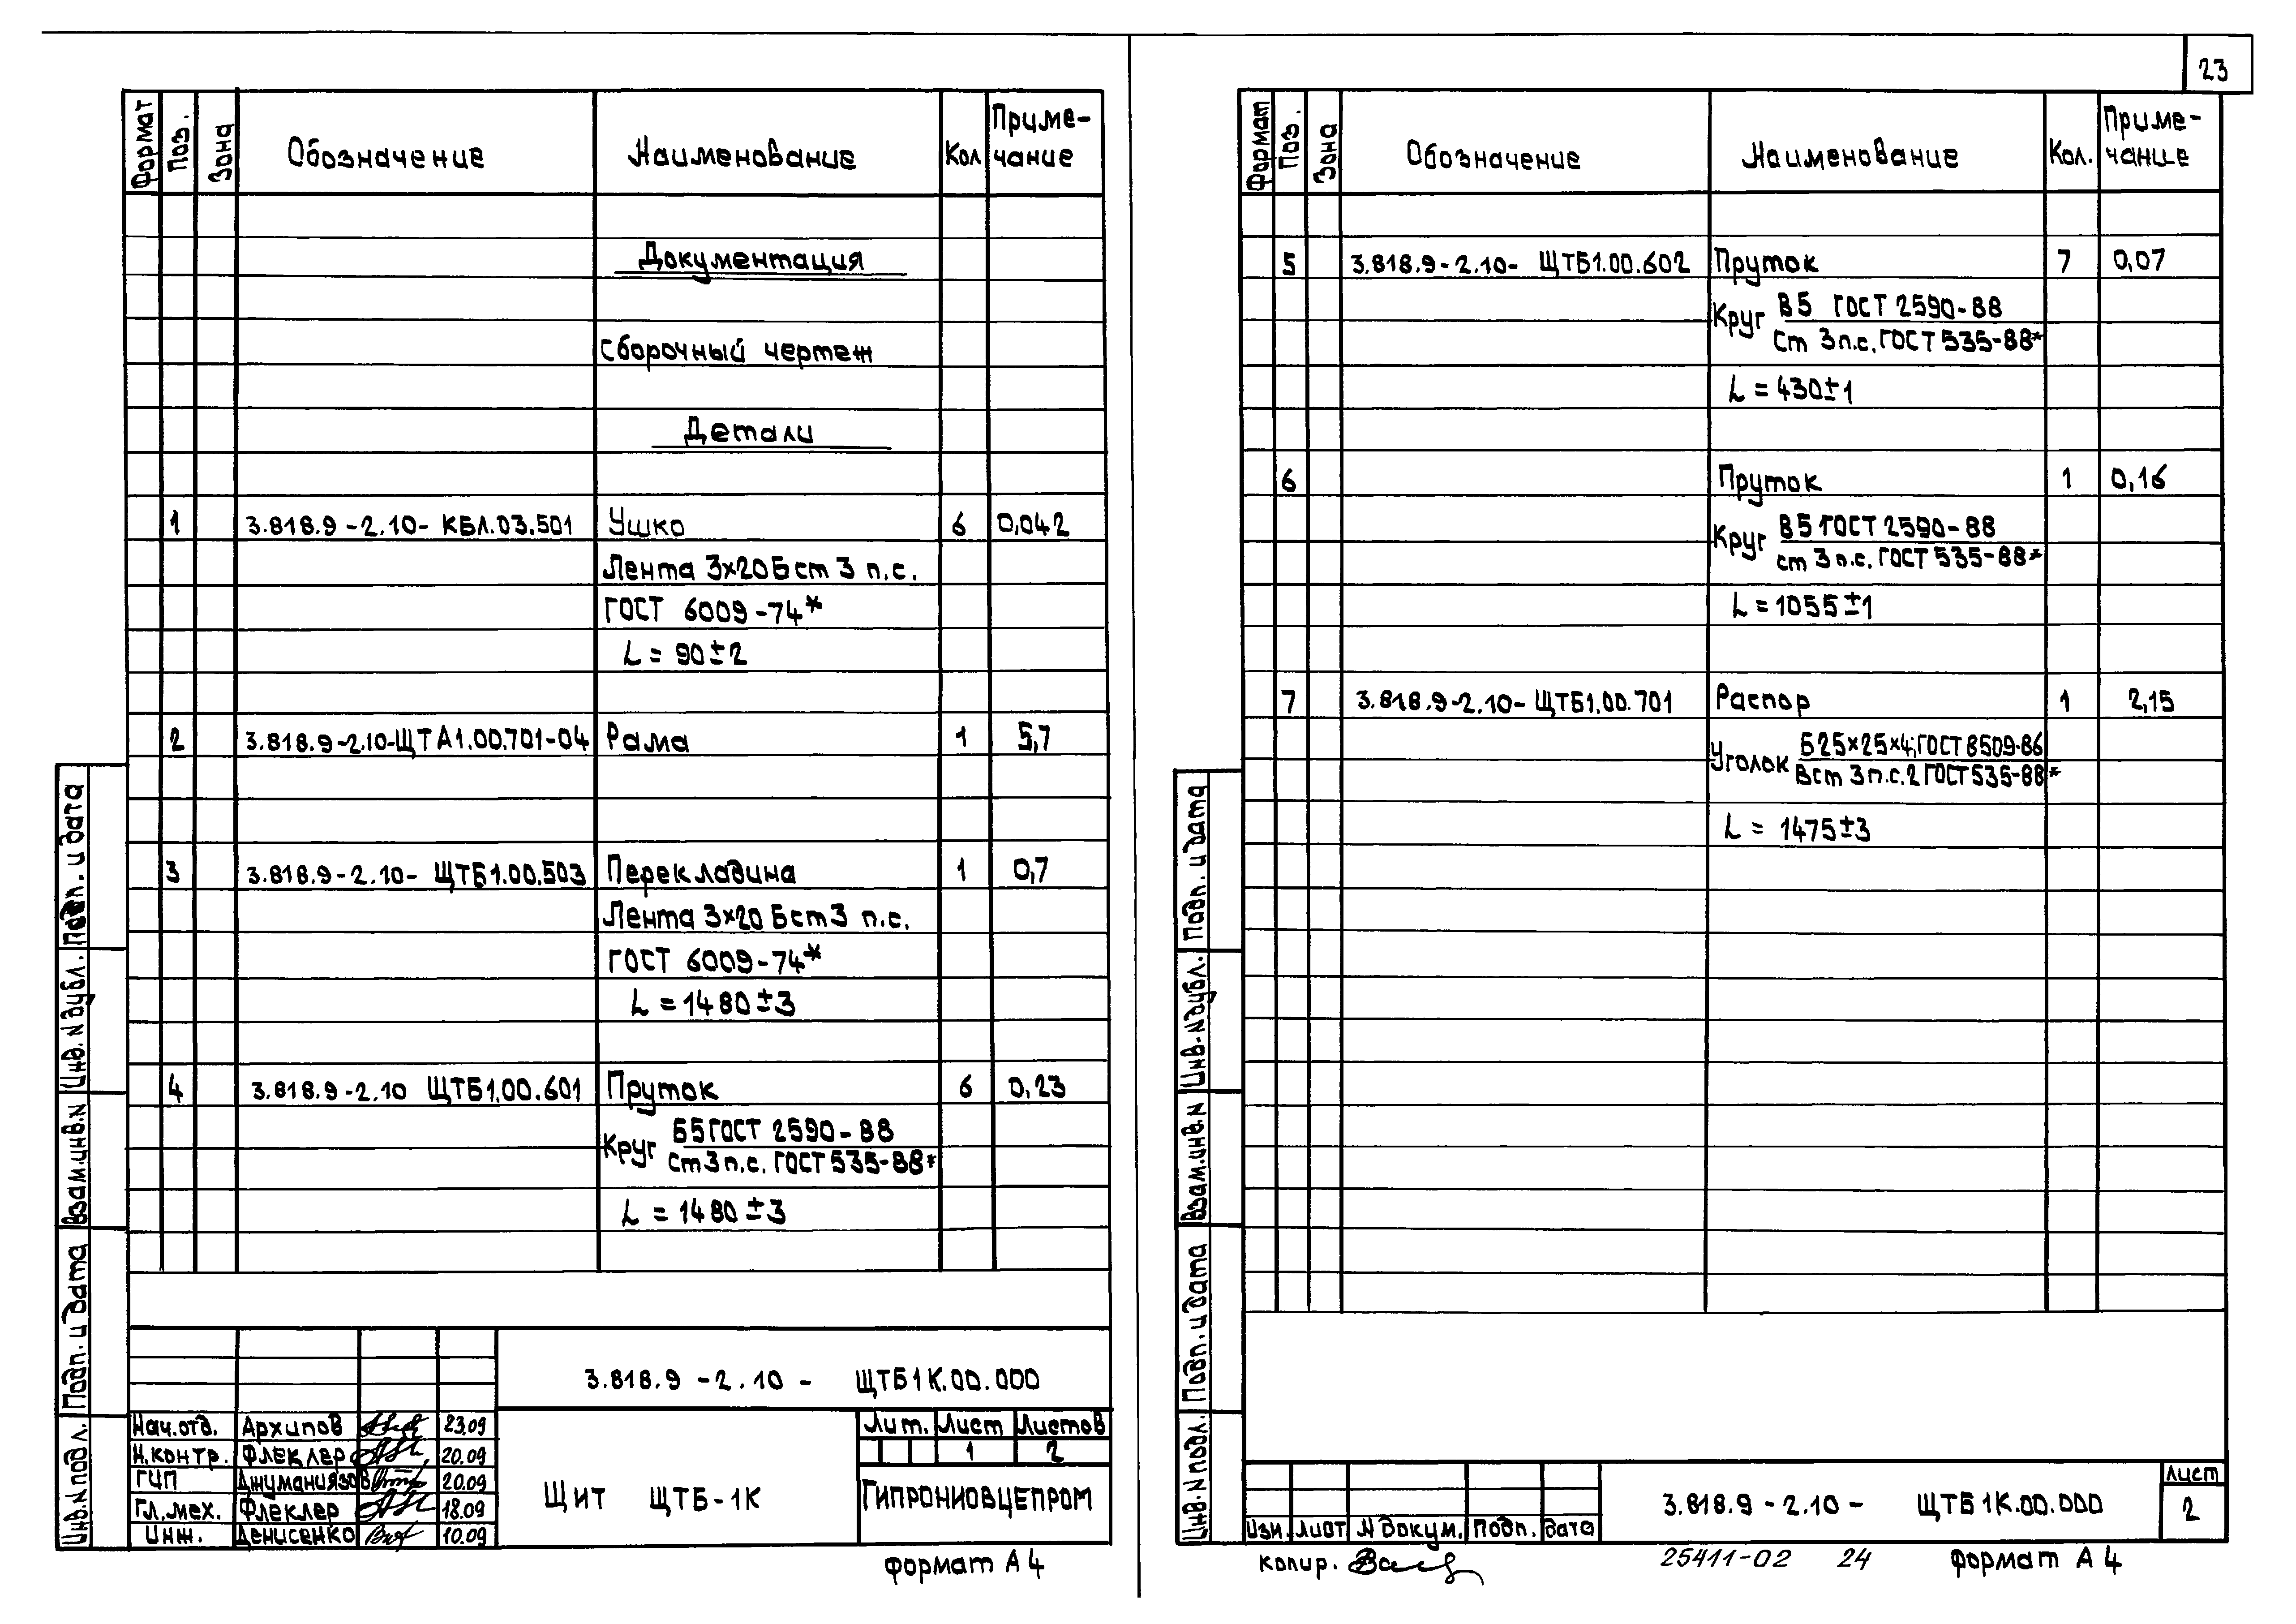 23
Формат Поз. Зона Обозначение Наименование Кол Приме-чание
Документация
сборочный чертеж
Детали
1 3.818.9-2.10-КБЛ.03.501 Ушко 6 0,042
Лента 3х20Бст 3 п.с.
ГОСТ 6009-74*
L = 90±2
2 3.818.9-2.10-ЩТА1.00.701-04 Рама 1 5,7
3 3.818.9-2.10- ЩТБ1.00.503 Перекладина 1 0,7
Лента 3х20 Бст3 п.с.
ГОСТ 6009-74*
L = 1480±3
4 3.818.9-2.10 ЩТБ1.00.601 Пруток 6 0,23
Круг Б5ГОСТ 2590-88
Ст3п.с. ГОСТ 535-88*
L = 1480±3
3.818.9-2.10- ЩТБ1К.00.000
Нач.отд. Архипов 23.09
Н.контр. Флеклер 20.09
ГИП Джуманиязов 20.09
Гл.мех. Флеклер 18.09
Инж. Денисенко 10.09
Щит ЩТБ-1К
Лит. Лист Листов
1 2
ГИПРОНИОВЦЕПРОМ
формат А4
Инв.N подл. Подп. и дата Взам.инв.N Инв.N дубл. Подп. и дата
Формат Поз. Зона Обозначение Наименование Кол. Приме-чание
5 3.818.9-2.10- ЩТБ1.00.602 Пруток 7 0,07
Круг В5 ГОСТ 2590-88
Ст 3п.с. ГОСТ 535-88*
L = 430±1
6 Пруток 1 0,16
Круг В5ГОСТ 2590-88
ст 3п.с. ГОСТ 535-88*
L = 1055±1
7 3.818.9-2.10-ЩТБ1.00.701 Распор 1 2,15
Уголок Б25х25х4;ГОСТ 8509-86
Вст 3п.с.2 ГОСТ 535-88*
L = 1475±3
Инв.N подл. Подп. и дата Взам.инв.N Инв.N дубл. Подп. и дата
Изм. Лист N докум. Подп. дата
3.818.9-2.10- ЩТБ1К.00.000
Лист
2
копир.
25411-02 24
формат А4